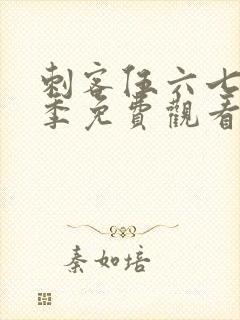 刺客伍六七
季免費觀看
秦如培